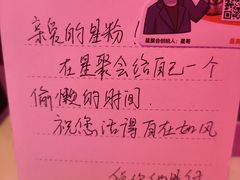 星聚会创始人：星哥
亲爱的星粉！
在星聚会给自己一个
偷懒的时间.
祝您活得自在如风